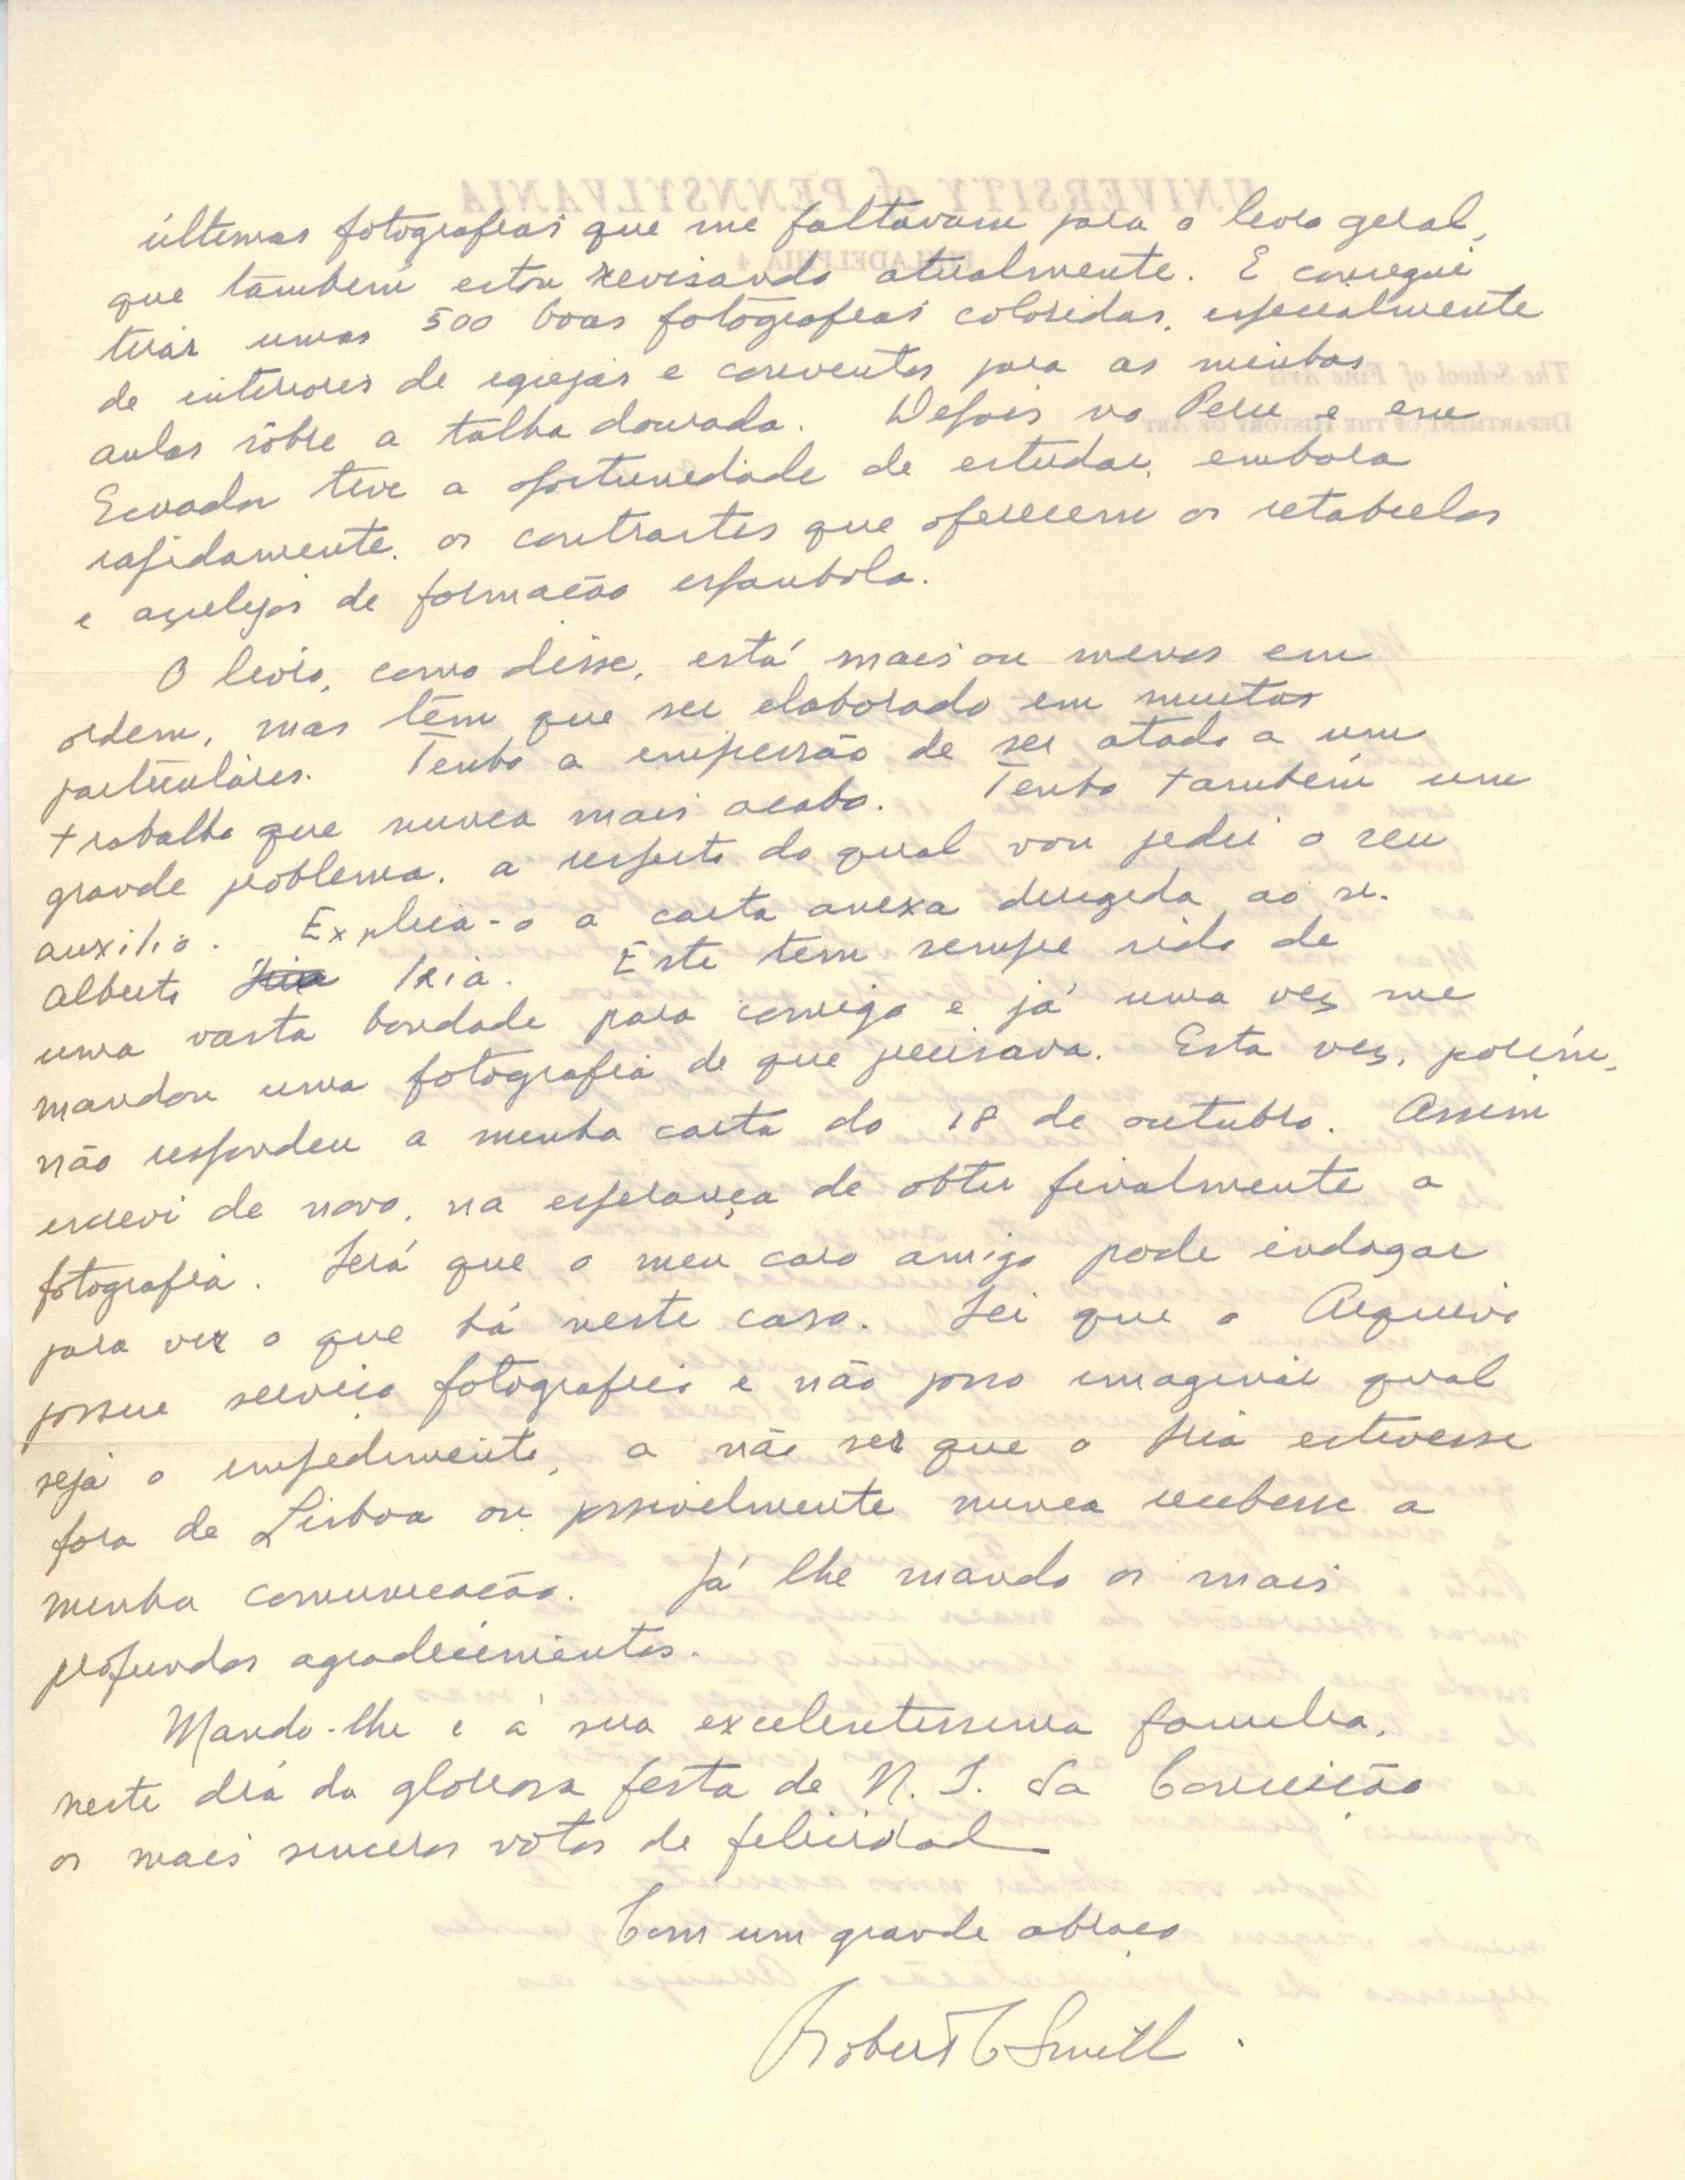 últimas fotografias que me faltavam para o livro geral,
que também estou revisando atualmente. E consegui
tirar umas 500 boas fotografias coloridas, especialmente
de interiores de igrejas e conventos para as minhas
aulas sôbre a talha dourada. Depois no Peru e em
Ecuador tive a oportunidade de estudar, embora
rapidamente, os contrastes que oferecem os retabulos
e azulejos de formação espanhola.
O livro, como disse, está mais ou menos em
ordem, mas têm que ser elaborado em muitos
particulares. Tenho a impressão de ser atado a um
trabalho que nunca mais acabo. Tenho também um
grande problema, a respeito do qual vou pedir o seu
auxilio. Explica-o a carta anexa dirigida ao sr.
Alberto Iria. Este tem sempre sido de
uma vasta bondade para comigo e já uma vez me
mandou uma fotografia de que precisava. Esta vez, porém,
não respondeu a minha carta do 18 de outubro. Assim
escrevi de novo, na esperança de obter finalmente a
fotografia. Será que o meu caro amigo pode indagar
para ver o que há neste caso. Sei que o Arquivo
possue serviço fotografico e não posso imaginar qual
seja o impedimento, a não ser que o Iria estivesse
fora de Lisboa ou possivelmente nunca recebesse a
minha comunicação. Já lhe mando os mais
profundos agradecimentos.
Mando-lhe e à sua excelentissima familia,
neste dia da gloriosa festa de N. S. da Conceição
os mais sinceros votos de felicidad
Com um grande abraço
Robert C Smith.
UNIVERSITY of PENNSYLVANIA
PHILADELPHIA 4
The School of Fine Arts
DEPARTMENT OF THE HISTORY OF ART